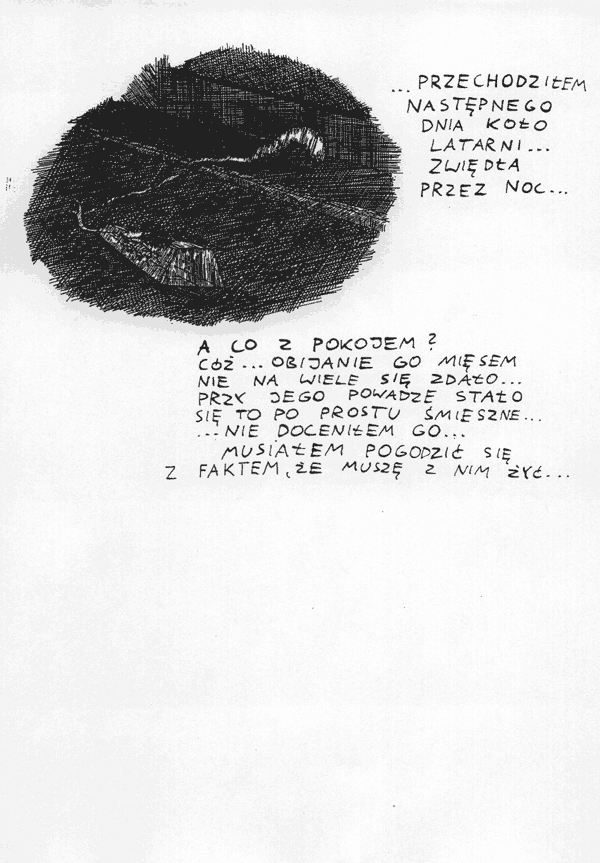 ... PRZECHODZIŁEM
NASTĘPNEGO
DNIA KOŁO
LATARNI...
ZWIĘDŁA
PRZEZ NOC...
A CO Z POKOJEM?
CÓŻ... OBIJANIE GO MIĘSEM
NIE NA WIELE SIĘ ZDAŁO...
PRZY JEGO POWADZE STAŁO
SIĘ TO PO PROSTU ŚMIESZNE...
...NIE DOCENIŁEM GO...
MUSIAŁEM POGODZIĆ SIĘ
Z FAKTEM, ŻE MUSZĘ Z NIM ŻYĆ...